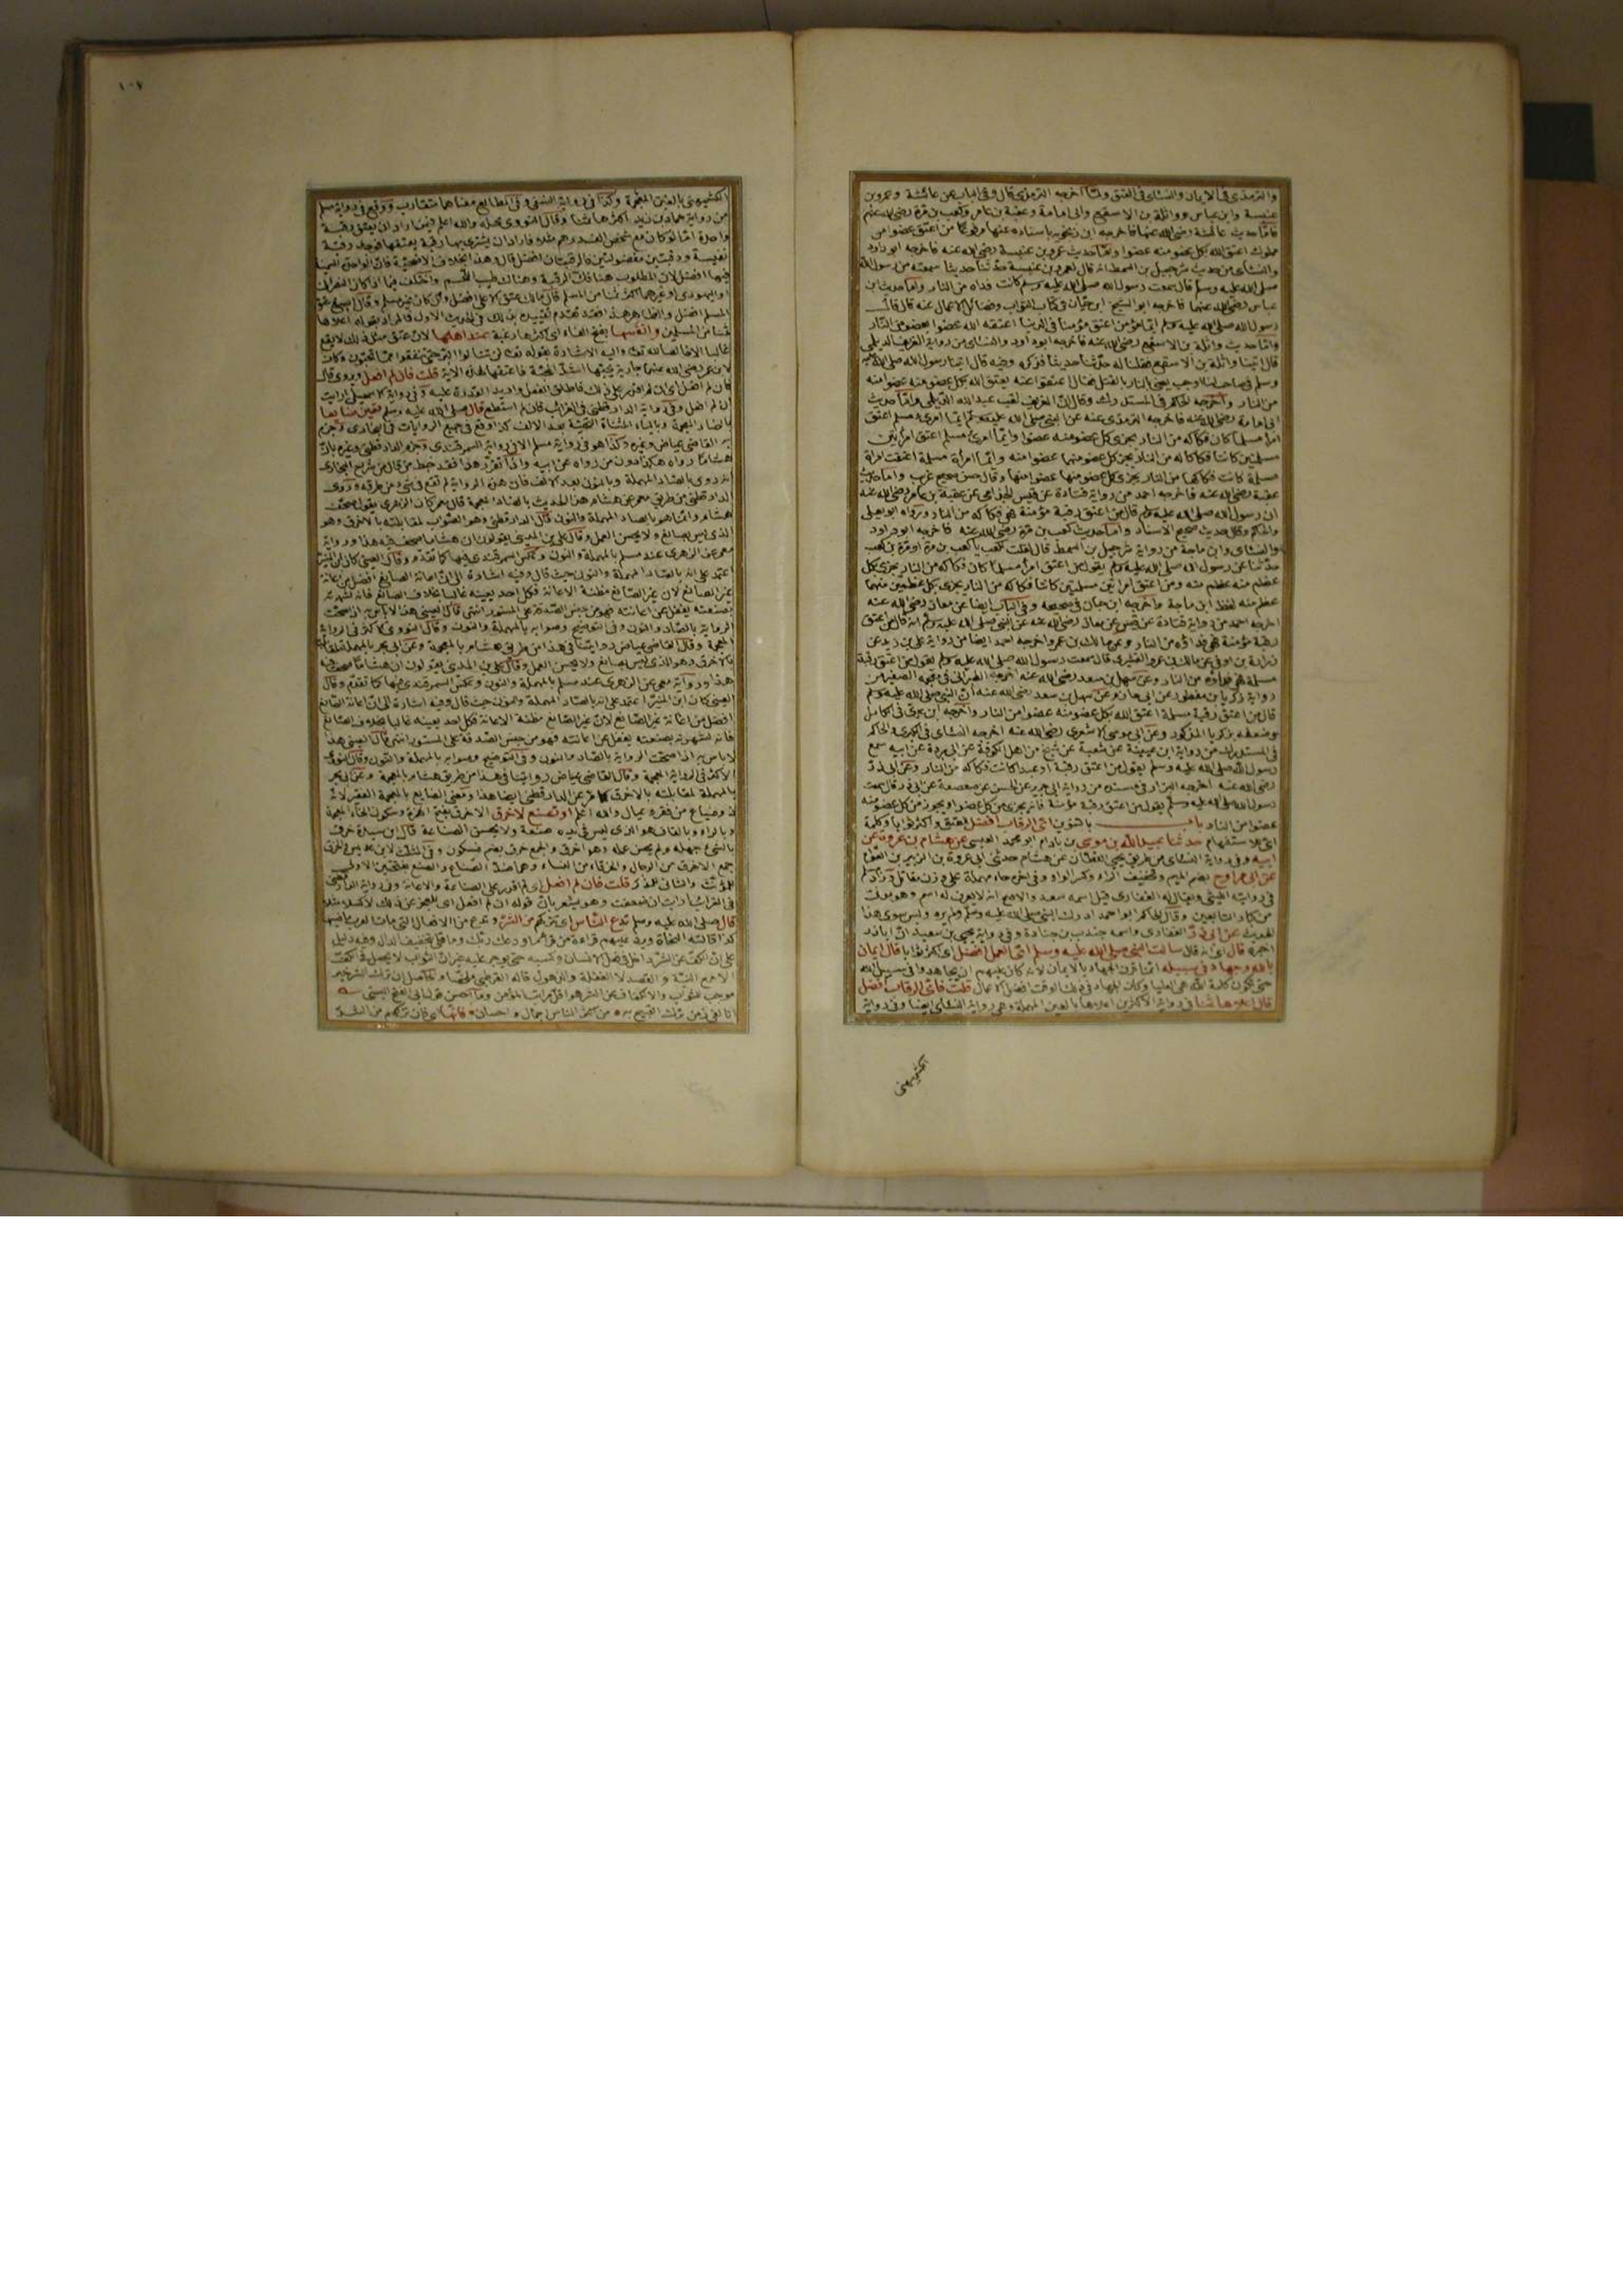 والترمذي في الايمان والنسائي في العتق ولما اخرجه الترمذي قال وفي الباب عن عائشة وعمرو بن
عنبسة وابن عباس وواثلة بن الاسقع وابي امامة وعقبة بن عامر وكعب بن مرة رضي الله عنهم
فاما حديث عائشة رضي الله عنها فاخرجه ابن زنجويه باسناده عنها مرفوعا من اعتق عضوا من
مملوك اعتق الله بكل عضو منه عضوا واما حديث عمرو بن عنبسة رضي الله عنه فاخرجه ابو داود
والنسائي من حديث شرحبيل بن السمط انه قال لعمرو بن عنبسة حدثنا حديثا سمعته من رسول الله
صلى الله عليه وسلم قال سمعت رسول الله صلى الله عليه وسلم كانت فداه من النار واما حديث ابن
عباس رضي الله عنهما فاخرجه ابو الشيخ ابن حبان في كتاب الثواب وفضائل الاعمال عنه قال قال
رسول الله صلى الله عليه وسلم ايما مؤمن اعتق مؤمنا في الدنيا اعتقه الله عضوا بعضو من النار
واما حديث واثلة بن الاسقع رضي الله عنه فاخرجه ابو داود والنسائي من رواية الغريف الديلمي
قال اتينا واثلة بن الاسقع فقلنا له حدثنا حديثا فذكره وفيه قال اتينا رسول الله صلى الله عليه
وسلم في صاحب لنا اوجب يعني النار بالقتل فقال اعتقوا عنه يعتق الله بكل عضو منه عضوا منه
من النار واخرجه الحاكم في المستدرك وقال ان الغريف لقب عبد الله الديلمي واما حديث
ابي امامة رضي الله عنه فاخرجه الترمذي عنه عن النبي صلى الله عليه وسلم ايما امرئ مسلم اعتق
امرأ مسلما كان فكاكه من النار يجزي كل عضو منه عضوا وايما امرئ مسلم اعتق امرأتين
مسلمتين كانتا فكاكه من النار يجزي كل عضو منهما عضوا منه وايما امرأة مسلمة اعتقت امرأة
مسلمة كانت فكاكها من النار يجزي كل عضو منها عضوا منها وقال حسن صحيح غريب واما حديث
عقبة رضي الله عنه فاخرجه احمد من رواية قتادة عن قيس الجذامي عن عقبة بن عامر رضي الله عنه
ان رسول الله صلى الله عليه وسلم قال من اعتق رقبة مؤمنة فهي فكاكه من النار ورواه ابو يعلى
والحاكم وقال حديث صحيح الاسناد واما حديث كعب بن مرة رضي الله عنه فاخرجه ابو داود
والنسائي وابن ماجة من رواية شرحبيل بن السمط قال قلت لكعب يا كعب بن مرة او مرة بن كعب
حدثنا عن رسول الله صلى الله عليه وسلم يقول من اعتق امرأ مسلما كان فكاكه من النار يجزي بكل
عظم منه عظم منه ومن اعتق امرأتين مسلمتين كانتا فكاكه من النار يجزي بكل عظمين منهما
عظم منه لفظ ابن ماجة واخرجه ابن حبان في صحيحه وفي الباب ايضا عن معاذ رضي الله عنه
اخرجه احمد من رواية قتادة عن قيس عن معاذ رضي الله عنه عن النبي صلى الله عليه وسلم انه قال من اعتق
رقبة مؤمنة فهي فداؤه من النار وعن مالك بن عمرو اخرجه احمد ايضا من رواية علي بن زيد عن
زرارة بن اوفى عن مالك بن عمرو القشيري قال سمعت رسول الله صلى الله عليه وسلم يقول من اعتق رقبة
مسلمة فهي فداؤه من النار وعن سهل بن سعد رضي الله عنه اخرجه الطبراني في معجمه الصغير من
رواية زكريا بن منظور عن ابي حازم عن سهل بن سعد رضي الله عنه ان النبي صلى الله عليه وسلم
قال من اعتق رقبة مسلمة اعتق الله بكل عضو منه عضوا من النار واخرجه ابن عدي في الكامل
وضعفه بزكريا المذكور وعن ابي موسى الاشعري رضي الله عنه اخرجه النسائي في الكبرى والحاكم
في المستدرك من رواية ابن عيينة عن شعبة عن شيخ من اهل الكوفة عن ابي بردة عن ابيه سمع
رسول الله صلى الله عليه وسلم يقول من اعتق رقبة او عبدا كانت فكاكه من النار وعن ابي ذر
رضي الله عنه اخرجه البزار في مسنده من رواية ابي حريز عن الحسن عن صعصعة عن ابي ذر قال سمعت
رسول الله صلى الله عليه وسلم يقول من اعتق رقبة مؤمنة فانه يجزي من كل عضو او يجوز من كل عضو منه
عضوا من النار باب بالتنوين اي الرقاب افضل للعتق واكثر ثوابا وكلمة
اي للاستفهام حدثنا عبيد الله بن موسى بن باذام ابو محمد العبسي عن هشام بن عروة عن
ابيه وفي رواية النسائي من طريق يحيى القطان عن هشام حدثني ابي عروة بن الزبير بن العوام
عن ابي مراوح بضم الميم وتخفيف الراء وكسر الواو وفي اخره حاء مهملة على وزن مقاتل وزاد مسلم
في روايته الليثي ويقال له الغفاري قيل اسمه سعد والاصح انه لا يعرف له اسم وهو معدود
من كبار التابعين وقال الحاكم ابو احمد ادرك النبي صلى الله عليه وسلم ولم يره وليس سوى هذا
الحديث عن ابي ذر الغفاري واسمه جندب بن جنادة وفي رواية يحيى بن سعيد ان ابا ذر
اخبره قال اي انه قال سالت النبي صلى الله عليه وسلم اي العمل افضل اي اكثر ثوابا قال ايمان
بالله وجهاد في سبيله انما قرن الجهاد بالايمان لانه كان عليهم ان يجاهدوا في سبيل الله
حتى تكون كلمة الله هي العليا وكان الجهاد في ذلك الوقت افضل الاعمال قلت فاي الرقاب افضل
قال اعلاها ثمنا في رواية الاكثرين اعلاها بالعين المهملة وهي رواية النسائي ايضا وفي رواية
الكشميهني
١٠٧
الكشميهني بالغين المعجمة وكذا في رواية النسفي وفي المطالع معناهما متقارب ووقع في رواية مسلم
من رواية حماد بن زيد اكثرها ثمنا وقال النووي محله والله اعلم فيمن اراد ان يعتق رقبة
واحدة اما لو كان مع شخص الف درهم مثلا فاراد ان يشتري بها رقبة يعتقها فوجد رقبة
نفيسة ورقبتين مفضولتين فالرقبتان افضل قال وهذا بخلاف الاضحية فان الواحدة السمينة
فيها افضل لان المطلوب هنا فك الرقبة وهناك طيب اللحم واختلف فيما اذا كان النصراني
او اليهودي او غيرهما اكثر ثمنا من المسلم قال مالك عتق الاعلى افضل وان كان غير مسلم وقال اصبغ عتق
المسلم افضل والظاهر هذا فقد تقدم تقييده بذلك في الحديث الاول فالمراد بقوله اعلاها
ثمنا من المسلمين وانفسها بفتح الفاء اي اكثرها رغبة عند اهلها لان عتق مثل ذلك لا يقع
غالبا الا خالصا لله تعالى واليه الاشارة بقوله تعالى لن تنالوا البر حتى تنفقوا مما تحبون وكان
لابن عمر رضي الله عنهما جارية يحبها اشد المحبة فاعتقها لهذه الاية قلت فان لم افعل ويروى قال
فان لم افعل اي ان لم اقدر على ذلك فاطلق الفعل واريد القدرة عليه وفي رواية الاسمعيلي ارايت
ان لم افعل وفي رواية الدارقطني في الغرائب فان لم استطع قال صلى الله عليه وسلم تعين ضايعا
بالضاد المعجمة وبالياء المثناة التحتية بعد الالف كذا وقع في جميع الروايات في البخاري وجزم
به القاضي عياض وغيره وكذا هو في رواية مسلم الا في رواية السمرقندي وجزم الدارقطني وغيره بان
هشاما رواه هكذا دون من رواه عن ابيه واذا تقرر هذا فقد خبط من قال من شراح البخاري
انه روى بالصاد المهملة وبالنون بعد الالف فان هذه الرواية لم تقع في شيء من طرقه وروى
الدارقطني من طريق معمر عن هشام هذا الحديث بالضاد المعجمة قال معمر كان الزهري يقول صحف
هشام وانما هو بالصاد المهملة والنون قال الدارقطني وهو الصواب لمقابلته بالاخرق وهو
الذي ليس بصانع ولا يحسن العمل وقال علي بن المديني يقولون ان هشاما صحف فيه هذا ورواية
معمر عن الزهري عند مسلم بالمهملة والنون وعكس السمرقندي فيها كما تقدم وقال العيني كان ابن المنير
اعتمد على انه بالصاد المهملة والنون حيث قال وفيه اشارة الى ان اعانة الصانع افضل من اعانة
غير الصانع لان غير الصانع مظنة الاعانة فكل احد يعينه غالبا بخلاف الصانع فانه لشهرته
بصنعته يغفل عن اعانته فهو من جنس الصدقة على المستور انتهى قال العيني هذا لا باس به ان صحت
الرواية بالصاد والنون وفي التوضيح وصوابه بالمهملة والنون وقال النووي الاكثر في الرواية
المعجمة وقال القاضي عياض روايتنا في هذا من طريق هشام بالمعجمة وعن ابي بحر بالمهملة لمقابلته
بالاخرق وهو الذي ليس بصانع ولا يحسن العمل وقال علي بن المديني يقولون ان هشاما صحف فيه
هذا ورواية معمر عن الزهري عند مسلم بالمهملة والنون وعكس السمرقندي فيها كما تقدم وقال
العيني كان ابن المنير اعتمد على انه بالصاد المهملة والنون حيث قال وفيه اشارة الى ان اعانة الصانع
افضل من اعانة غير الصانع لان غير الصانع مظنة الاعانة فكل احد يعينه غالبا بخلاف الصانع
فانه لشهرته بصنعته يغفل عن اعانته فهو من جنس الصدقة على المستور انتهى قال العيني هذا
لا باس به اذا صحت الرواية بالصاد والنون وفي التوضيح وصوابه بالمهملة والنون وقال النووي
الاكثر في الرواية المعجمة وقال القاضي عياض روايتنا في هذا من طريق هشام بالمعجمة وعن ابي بحر
بالمهملة لمقابلته بالاخرق كما مر عن الدارقطني ايضا هذا ومعنى الضايع بالمعجمة الفقير لانه
ذو ضياع من فقر وعيال والله اعلم او تصنع لاخرق الاخرق بفتح الهمزة وسكون الخاء المعجمة
وبالراء وبالقاف هو الذي ليس في يده صنعة ولا يحسن الصناعة قال ابن سيده خرق
بالشيء جهله ولم يحسن عمله وهو اخرق والجمع خرق بضم فسكون وفي المثلث لابن عديس والخرق
جمع الاخرق من الرجال والخرقاء من النساء وهما ضد الصناع والصنع بفتحتين الاول
للمؤنث والثاني للمذكر قلت فان لم افعل اي لم اقدر على الصناعة والاعانة وفي رواية الدارقطني
في الغرائب ارايت ان ضعفت وهو يشعر بان قوله ان لم افعل اي للعجز عن ذلك لا كسلا مثلا
قال صلى الله عليه وسلم تدع الناس اي تتركهم من الشر وتدع من الافعال التي امات العرب ماضيها
كذا قالته النحاة ويرد عليهم قراءة من قرأ ما ودعك ربك وما قلى بتخفيف الدال وفيه دليل
على ان الكف عن الشر داخل في فعل الانسان وكسبه حتى يوجر عليه غير ان الثواب لا يحصل في الكف
الا مع النية والقصد لا الغفلة والذهول قاله القرطبي ملخصا والحاصل ان ترك الشر خير
موجب للثواب والانكفاف عن الشر هو اقل مراتب المؤمن وما احسن قول ابي الفتح البستي
انا لفي زمن ترك القبيح به من اكثر الناس اجمال واحسان فانها اي فان تركهم من الشر